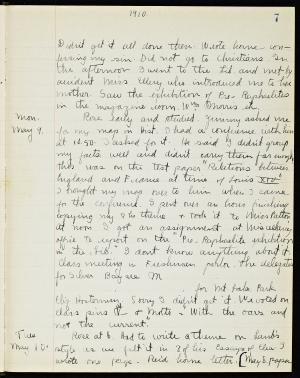 1910.
7
Didn't get it all done then. Wrote home con-
fessing my sin. Did not go to Christians. In
the afternoon I went to the Lib. and met by
accident Miss Ellery who introduced me to her
mother. Saw the exhibition of Pre-Raphaelites
in the magazine room. Wm Morris etc.
Mon. Rose early and studied. Jimmy asked me
May 9. for my map in hist. I had a conference with him
at 10.50. I asked for it. He said I didn't group
my facts well and didn't carry them far enough
this was on the test paper Relations between
England and France at time of Louis XIV
I brought my map over to him when I came
for the conference. I spent over an hour finishing
copying my theme & took it to Miss
at noon. I got an assignment at Miscellany
office to report on the Pre-Raphaelite exhibition
in the Lib. I don't know anything about it
Class meeting in Freshman parlor. The delegates
for Silver Bay are M
for Mt. Lake Park
Sorry I didn't get it. We voted on
class pins & Motto - With the oars and
not the current.
Tues Rose at 6. Had to write a theme on Lamb's
May 10. style as we felt it in 3 of his Essays of Elia. I
wrote one page. Rec'd home letter. (May 8. paper